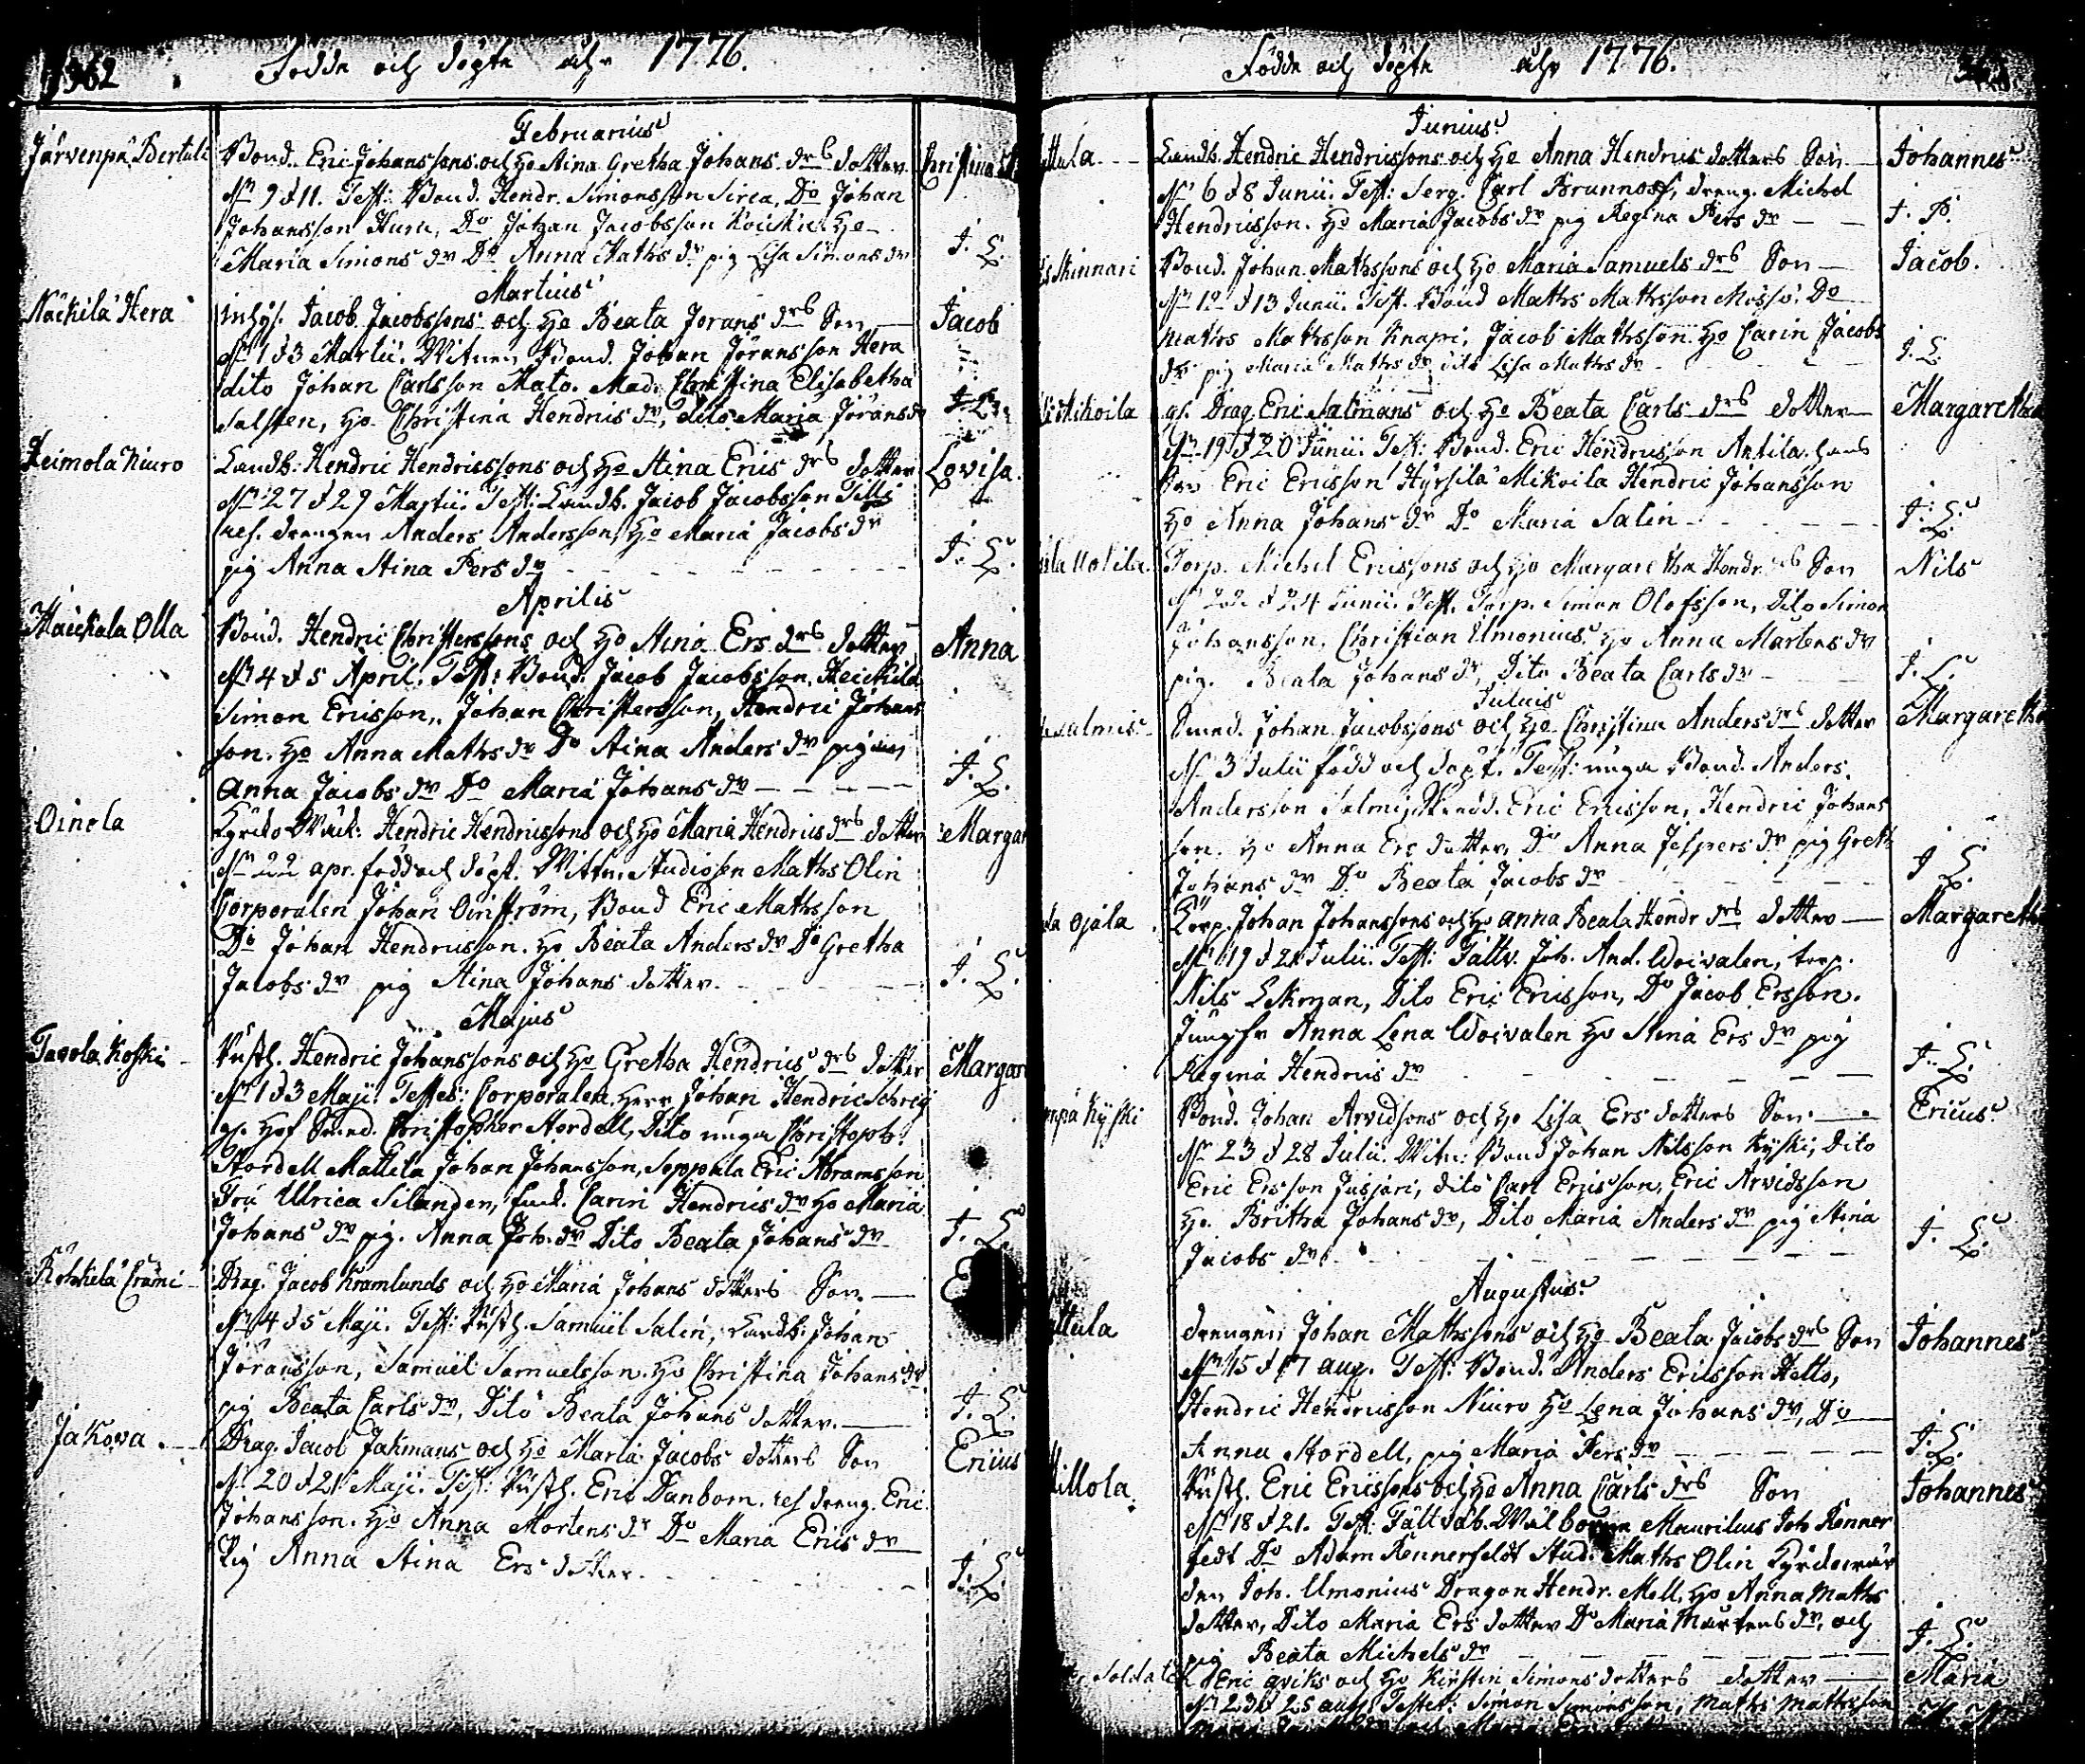 362
Födde och döpte åhr 1776.
Februarius
Järvenpä Bertula
Bond. Eric Johanssons och Ho Stina Gretha Johans drs dotter Christina
N 9 d 11. Test: Bond. Hendr. Simonsson Sirca, Do Johan
Johansson Huru, Do Johan Jacobsson Koicku Ho
Maria Simons dr Do Anna Maths dr pig Lisa Simons dr J. L.
Martius
Näckilä Hera
Inhys. Jacob Jacobssons och Ho Beata Jorans drs Son Jacob
N 1 d 3 Martii. Witnen Bond. Johan Jöransson Hera
dito Johan Carlsson Mato. Mad. Christina Elisabetha
Salsten, Ho Christina Hendrics dr, dito Maria Jörans dr J. L.
Heimola Niuro
Landb. Hendric Hendricssons och Ho Stina Erics drs dotter Lovisa.
N 27 d 29 Martii. Test: Landb. Jacob Jacobsson Tilli
drengen Anders Andersson, Ho Maria Jacobs dr
pig Anna Stina Pers dr J. L.
Aprilis
Haickala Olla
Bond. Hendric Christerssons och Ho Stina Ers drs dotter Anna
N 4 d 5 April. Test: Bond. Jacob Jacobsson, Heickilä
Simon Ericsson, Johan Christersson, Hendric Johans
son. Ho Anna Maths dr Do Stina Anders dr pig
Anna Jacobs dr Do Maria Johans dr J. L.
Oinola
Kyrko Wäk: Hendric Hendricssons och Ho Maria Hendrics drs dotter Margar
N 22 apr. född och döpt. Wittn. Studiosen Maths Olin
Corporalen Johan Oinström, Bond Eric Mathsson
Do Johan Hendricsson. Ho Beata Anders dr Do Gretha
Jacobs dr pig Stina Johans dotter. J. L.
Majus
Tavola Koski
Rusth. Hendric Johanssons och Ho Gretha Hendrics drs dotter Margar
N 1 d 3 Maji. Testes: Corporalen Herr Johan Hendric Schreij
gs. Hof Smed. Christopher Nordell, Dito unga Christoph.
Nordell Mattila Johan Johansson, Seppälä Eric Abramsson
Fru Ulrica Silander, Carin Hendrics dr Ho Maria
Johans dr pig. Anna Joh. dr Dito Beata Johans dr J. L.
Kohkielä Crämi
Drag. Jacob Kramlunds och Ho Maria Johans dotters Son. E
N 4 d 5 Maji. Test: Rusth. Samuel Salin, Landb: Johan
Jöransson, Samuel Samuelsson. Ho Christina Johans dr
pig Beata Carls dr, Dito Beata Johans dotter. J. L.
Jakova
Drag. Jacob Jakmans och Ho Maria Jacobs dotters Son Ericus
N 20 d 21 Maji. Test: Rusth. Eric Danbom. dreng. Eric
Johansson. Ho Anna Mortens dr Do Maria Erics dr
Pig Anna Stina Ers dotter. J. L.
Födde och döpte åhr 1776.
Junius
Landb. Hendric Hendricssons och Ho Anna Hendrics dotters Son Johannes
N 6 d 8 Junii. Test: Serg. Carl Brunnow, dreng. Michel
Hendricsson. Ho Maria Jacobs dr pig Regina Pers dr J. P.
Skinnari
Bond. Johan Mathssons och Ho Maria Samuels drs Son Jacob.
N 12 d 13 Junii. Test. Bond Maths Mathsson Do
Maths Mathsson Knapri, Jacob Mathsson. Ho Carin Jacobs
dr pig Maria Maths dr dito Lisa Maths dr J. L.
Mikoila
gs. Drag. Eric Salmans och Ho Beata Carls drs dotter Margaretha
N 19 d 20 Junii. Test: Bond. Eric Hendricsson Antila. hans
Son Eric Ericsson Hyrsilä Mikoila Hendric Johansson
Ho Anna Johans dr Do Maria Salin J. L.
Torp. Michel Ericssons och Ho Margaretha Hendr. drs Son Nils
N 22 d 24 Junii. Test. Torp. Simon Olofsson, Dito Simon
Johansson, Christian Umonius Ho Anna Mårtens dr
pig. Beata Johans dr, Dito Beata Carls dr J. L.
Julius
Smed. Johan Jacobssons och Ho Christina Anders drs dotter Margaretha
N 3 Julii född och döpt. Test: unga Bond. Anders
Andersson Salmi, Eric Ericsson, Hendric Johans
son. Ho Anna Ers dotter, Do Anna Jespers dr pig Greth
Johans dr Do Beata Jacobs dr J. L.
Ojala
Torp. Johan Johanssons och Ho Anna Beata Hendr drs dotter Margaretha
N 19 d 21 Julii. Test: Fältv. Joh. And. Woivalen, torp.
Nils Ekman, Dito Eric Ericsson, Do Jacob Ersson.
Jungfr Anna Lena Woivalen Ho Stina Ers dr pig
Regina Hendrics dr J. L.
Kyski
Bond. Johan Arvidsons och Ho Lisa Ers dotters Son. Ericus
N 23 d 28 Julii. Witn: Bond Johan Nilsson Kyski, Dito
Eric Ersson Jusjäri, dito Carl Ericsson, Eric Arvidsson
Ho. Britha Johans dr, Dito Maria Anders dr pig Stina
Jacobs dr. J. L.
Augustus
drengen Johan Mathssons och Ho Beata Jacobs drs Son Johannes
N 15 d 17 aug. Test: Bond. Anders Ericsson Hello,
Hendric Hendricsson Niuro Ho Lena Johans dr, Do
Anna Nordell, pig Maria Pers dr J. L.
Rusth. Eric Ericssons och Ho Anna Carls drs Son Johannes
N 18 d 21. Test: Fältväb. Wälborne Mauritius Joh Renner
feldt Do Adam Rennerfeldt Stud. Maths Olin Kyrckowär
den Joh. Umonius Dragon Hendr. Mell, Ho Anna Maths
dotter, Dito Maria Ers dotter Do Maria Mårtens dr, och
pig Beata Michels dr J. L.
Soldaten Eric qviks och Ho Kirstin Simons dotters dotter Maria
N 23 d 25 aug Testes: Simon Simonsson, Maths Mathsson